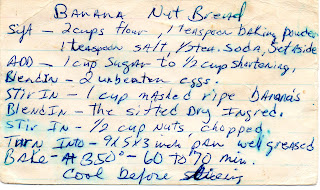 Banana Nut Bread
Sift - 2 cups flour, 1 teaspoon baking powder
1 teaspoon salt, 1/2 tea. Soda, Set aside
ADD - 1 cup Sugar to 1/2 cup shortening,
Blend in - 2 unbeaten eggs.
Stir IN - 1 cup mashed ripe bananas
Blend in - the sifted Dry Ingred.
Stir In - 1/2 cup nuts, chopped.
Turn Into - 9x5x3 inch pan well greased
Bake - At 350° - 60 to 70 min.
Cool before slicing